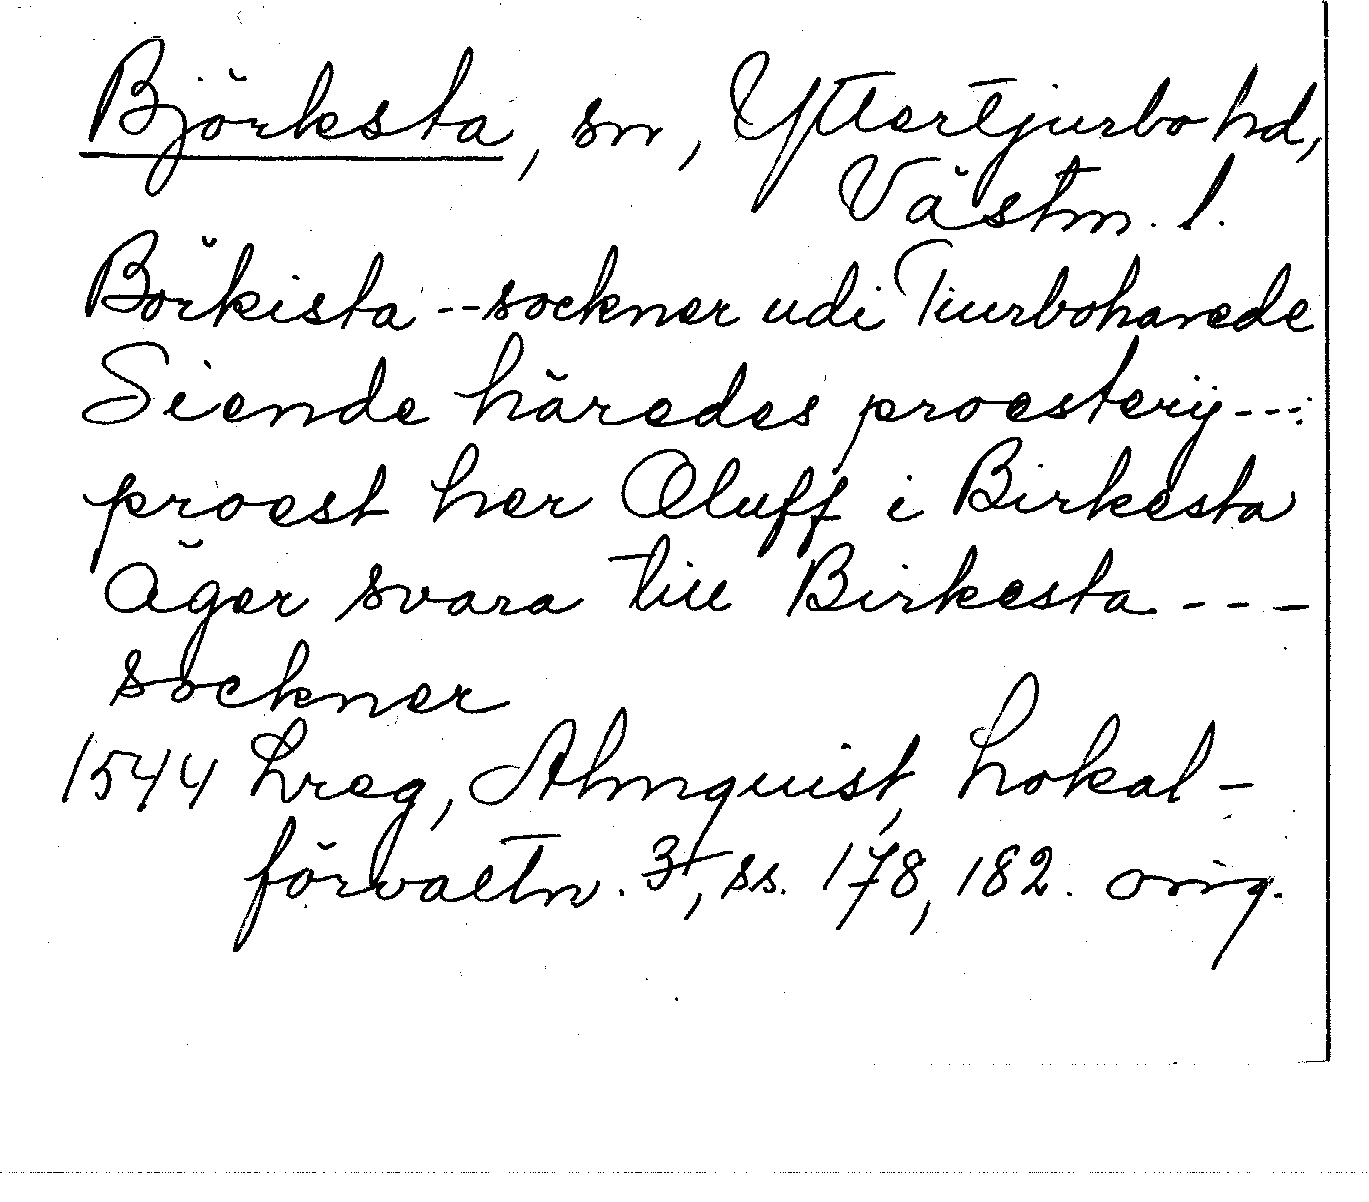 Björksta, sn, Yttertjurbo hd,
Västm. l.
Börkista -- sockner udi Tiurboharede
Siende häredes proesterij ---:
proest her Oluff i Birkesta
Äger svara till Birkesta ---
sockner
1544 Lreg, Almquist, Lokal-
förvaltn. 3, ss. 178, 182. orig.